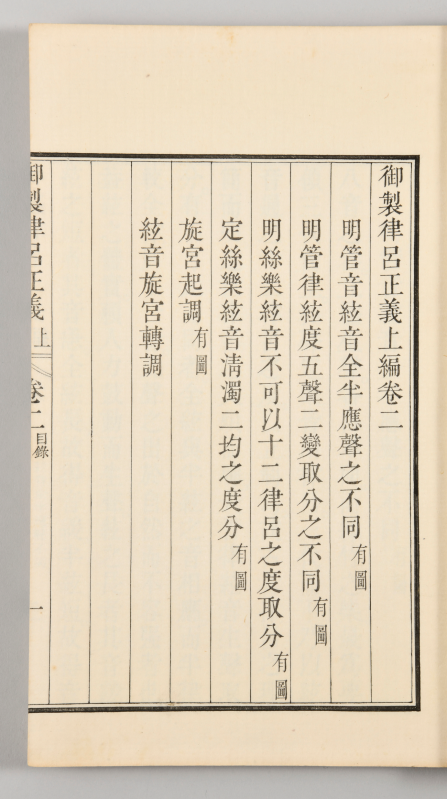 御製律呂正義上編卷二
明管音絃音全半應聲之不同有圖
明管律絃度五聲二變取分之不同有圖
明絲樂絃音不可以十二律呂之度取分有圖
定絲樂絃音淸濁二均之度分有圖
旋宮起調有圖
絃音旋宮轉調
御製律呂正義上 卷二目錄 一